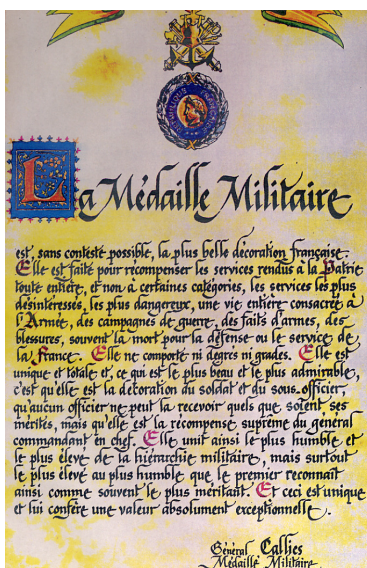 La Médaille Militaire
est, sans conteste possible, la plus belle décoration française.
Elle est faite pour récompenser les services rendus à la Patrie
toute entière, et non à certaines catégories, les services les plus
désintéressés, les plus dangereux, une vie entière consacrée à
l'Armée, des campagnes de guerre, des faits d'armes, des
blessures, souvent la mort pour la défense ou le service de
la France. Elle ne comporte ni degrés ni grades. Elle est
unique et totale et, ce qui est le plus beau et le plus admirable,
c'est qu'elle est la décoration du soldat et du sous-officier,
qu'aucun officier ne peut la recevoir quels que soient ses
mérites, mais qu'elle est la récompense suprême du général
commandant en chef. Elle unit ainsi le plus humble et
le plus élevé de la hiérarchie militaire, mais surtout
le plus élevé au plus humble que le premier reconnaît
ainsi comme souvent le plus méritant. Et ceci est unique
et lui confère une valeur absolument exceptionnelle.
Général Callies
Médaille Militaire